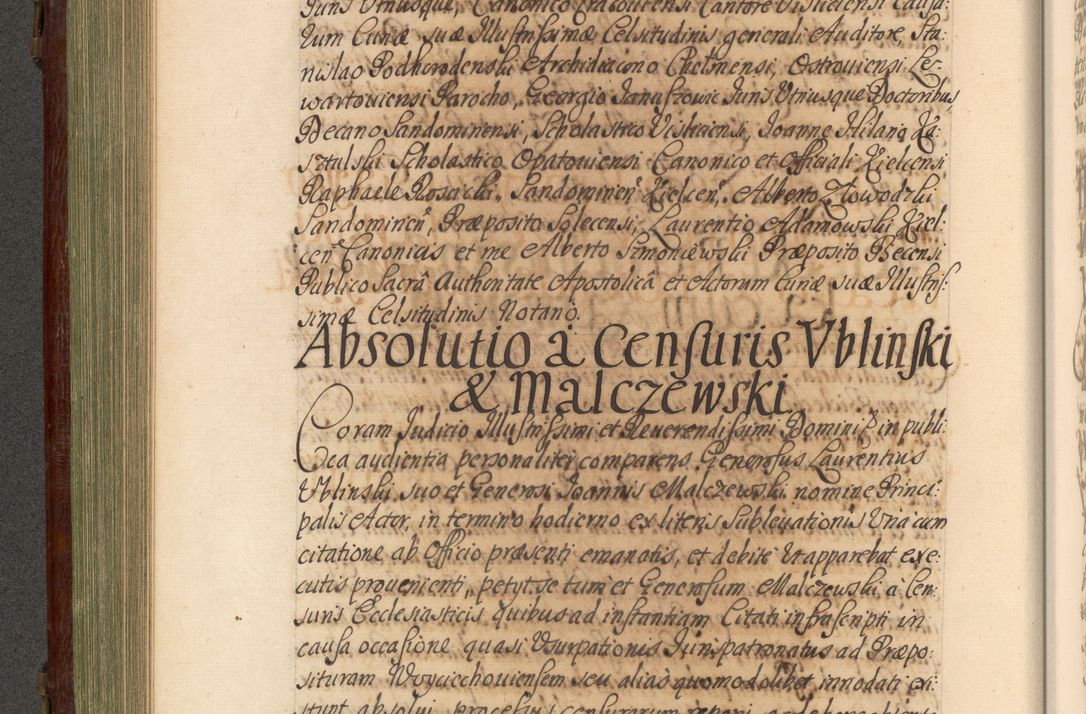 Juris Utriusque, Canonico Cracoviensi Cantore Visliciensi Causa:
rum Curiæ suæ Illustrissimæ Celsitudinis generali Auditore, Sta:
nislao Podhorodenski Archidiacono Chelmensi, Ostroviensi Le:
wartoviensi Parocho, Georgio Januszowic Juris Utriusque Doctoribus,
Decano Sandomiriensi, Scholastico Visliciensi, Joanne Hilario Ka:
sztulski Scholastico Opatoviensi Canonico et Officiali Kielcensi
Raphaele Rosaicki, Sandomirien̄ Kielcen̄, Alberto Złowodzki
Sandomirien̄, Præposito Solecensi, Laurentio Adamowski Kiel:
cen̄ Canonicis et me Alberto Simoniewski Præposito Becensi
Publico Sacrâ Authoritate Apostolicâ et Actorum Curiæ suæ Illustris:
simæ Celsitudinis Notario.
Absolutio à Censuris Vblinski
& Malczewski
Coram Judicio Illustrissimi et Reverendissimi Domini P in publi:
ca audientia personaliter comparens Generosus Laurentius
Vblinski suo et Generosi Joannis Malczewski nomine Princi:
palis Actor, in termino hodierno ex literis Sublevationis Una cum
citatione ab Officio præsenti emanatis, et debite ut apparebat exe:
cutis provenienti, petyt se tum et Generosum Malczewski à Cen:
suris Ecclesiasticis quibus ad instantiam Citati infrascripti in
causa occasione quasi Usurpationis Jurispatronatus ad Præpo:
situram Woyciechoviensem seu alias quomodolibet innodati exi:
stunt absolvi, processus censurarum